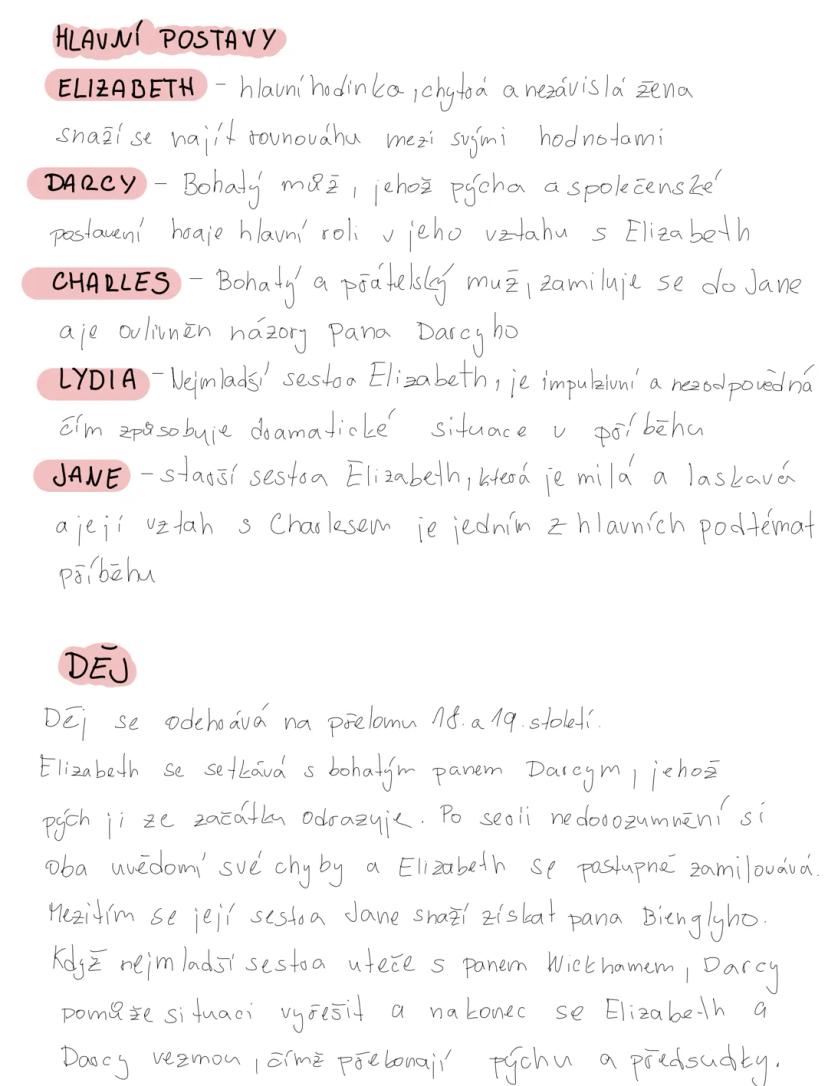 HLAVNÍ POSTAVY
ELIZABETH - hlavní hodinka, chytrá a nezávislá žena
snaží se najít rovnováhu mezi svými hodnotami
DARCY - Bohatý muž, jehož pýcha a společenské
postavení hraje hlavní roli v jeho vztahu s Elizabeth
CHARLES - Bohatý a přátelský muž, zamiluje se do Jane
a je ovlivněn názory Pana Darcyho
LYDIA - Nejmladší sestra Elizabeth, je impulzivní a nezodpovědná
čím způsobuje dramatické situace v příběhu
JANE - starší sestra Elizabeth, která je milá a laskavá
a její vztah s Charlesem je jedním z hlavních podtémat
příběhu
DĚJ
Děj se odehrává na přelomu 18. a 19. století.
Elizabeth se setkává s bohatým panem Darcym, jehož
pých ji ze začátku odrazuje. Po serii nedorozumnění si
oba uvědomí své chyby a Elizabeth se postupně zamilovává.
Mezitím se její sestra Jane snaží získat pana Bienglyho.
Když nejmladší sestra uteče s panem Wickhamem, Darcy
pomůže situaci vyřešit a nakonec se Elizabeth a
Darcy vezmou, čímž překonají pýchu a předsudky.